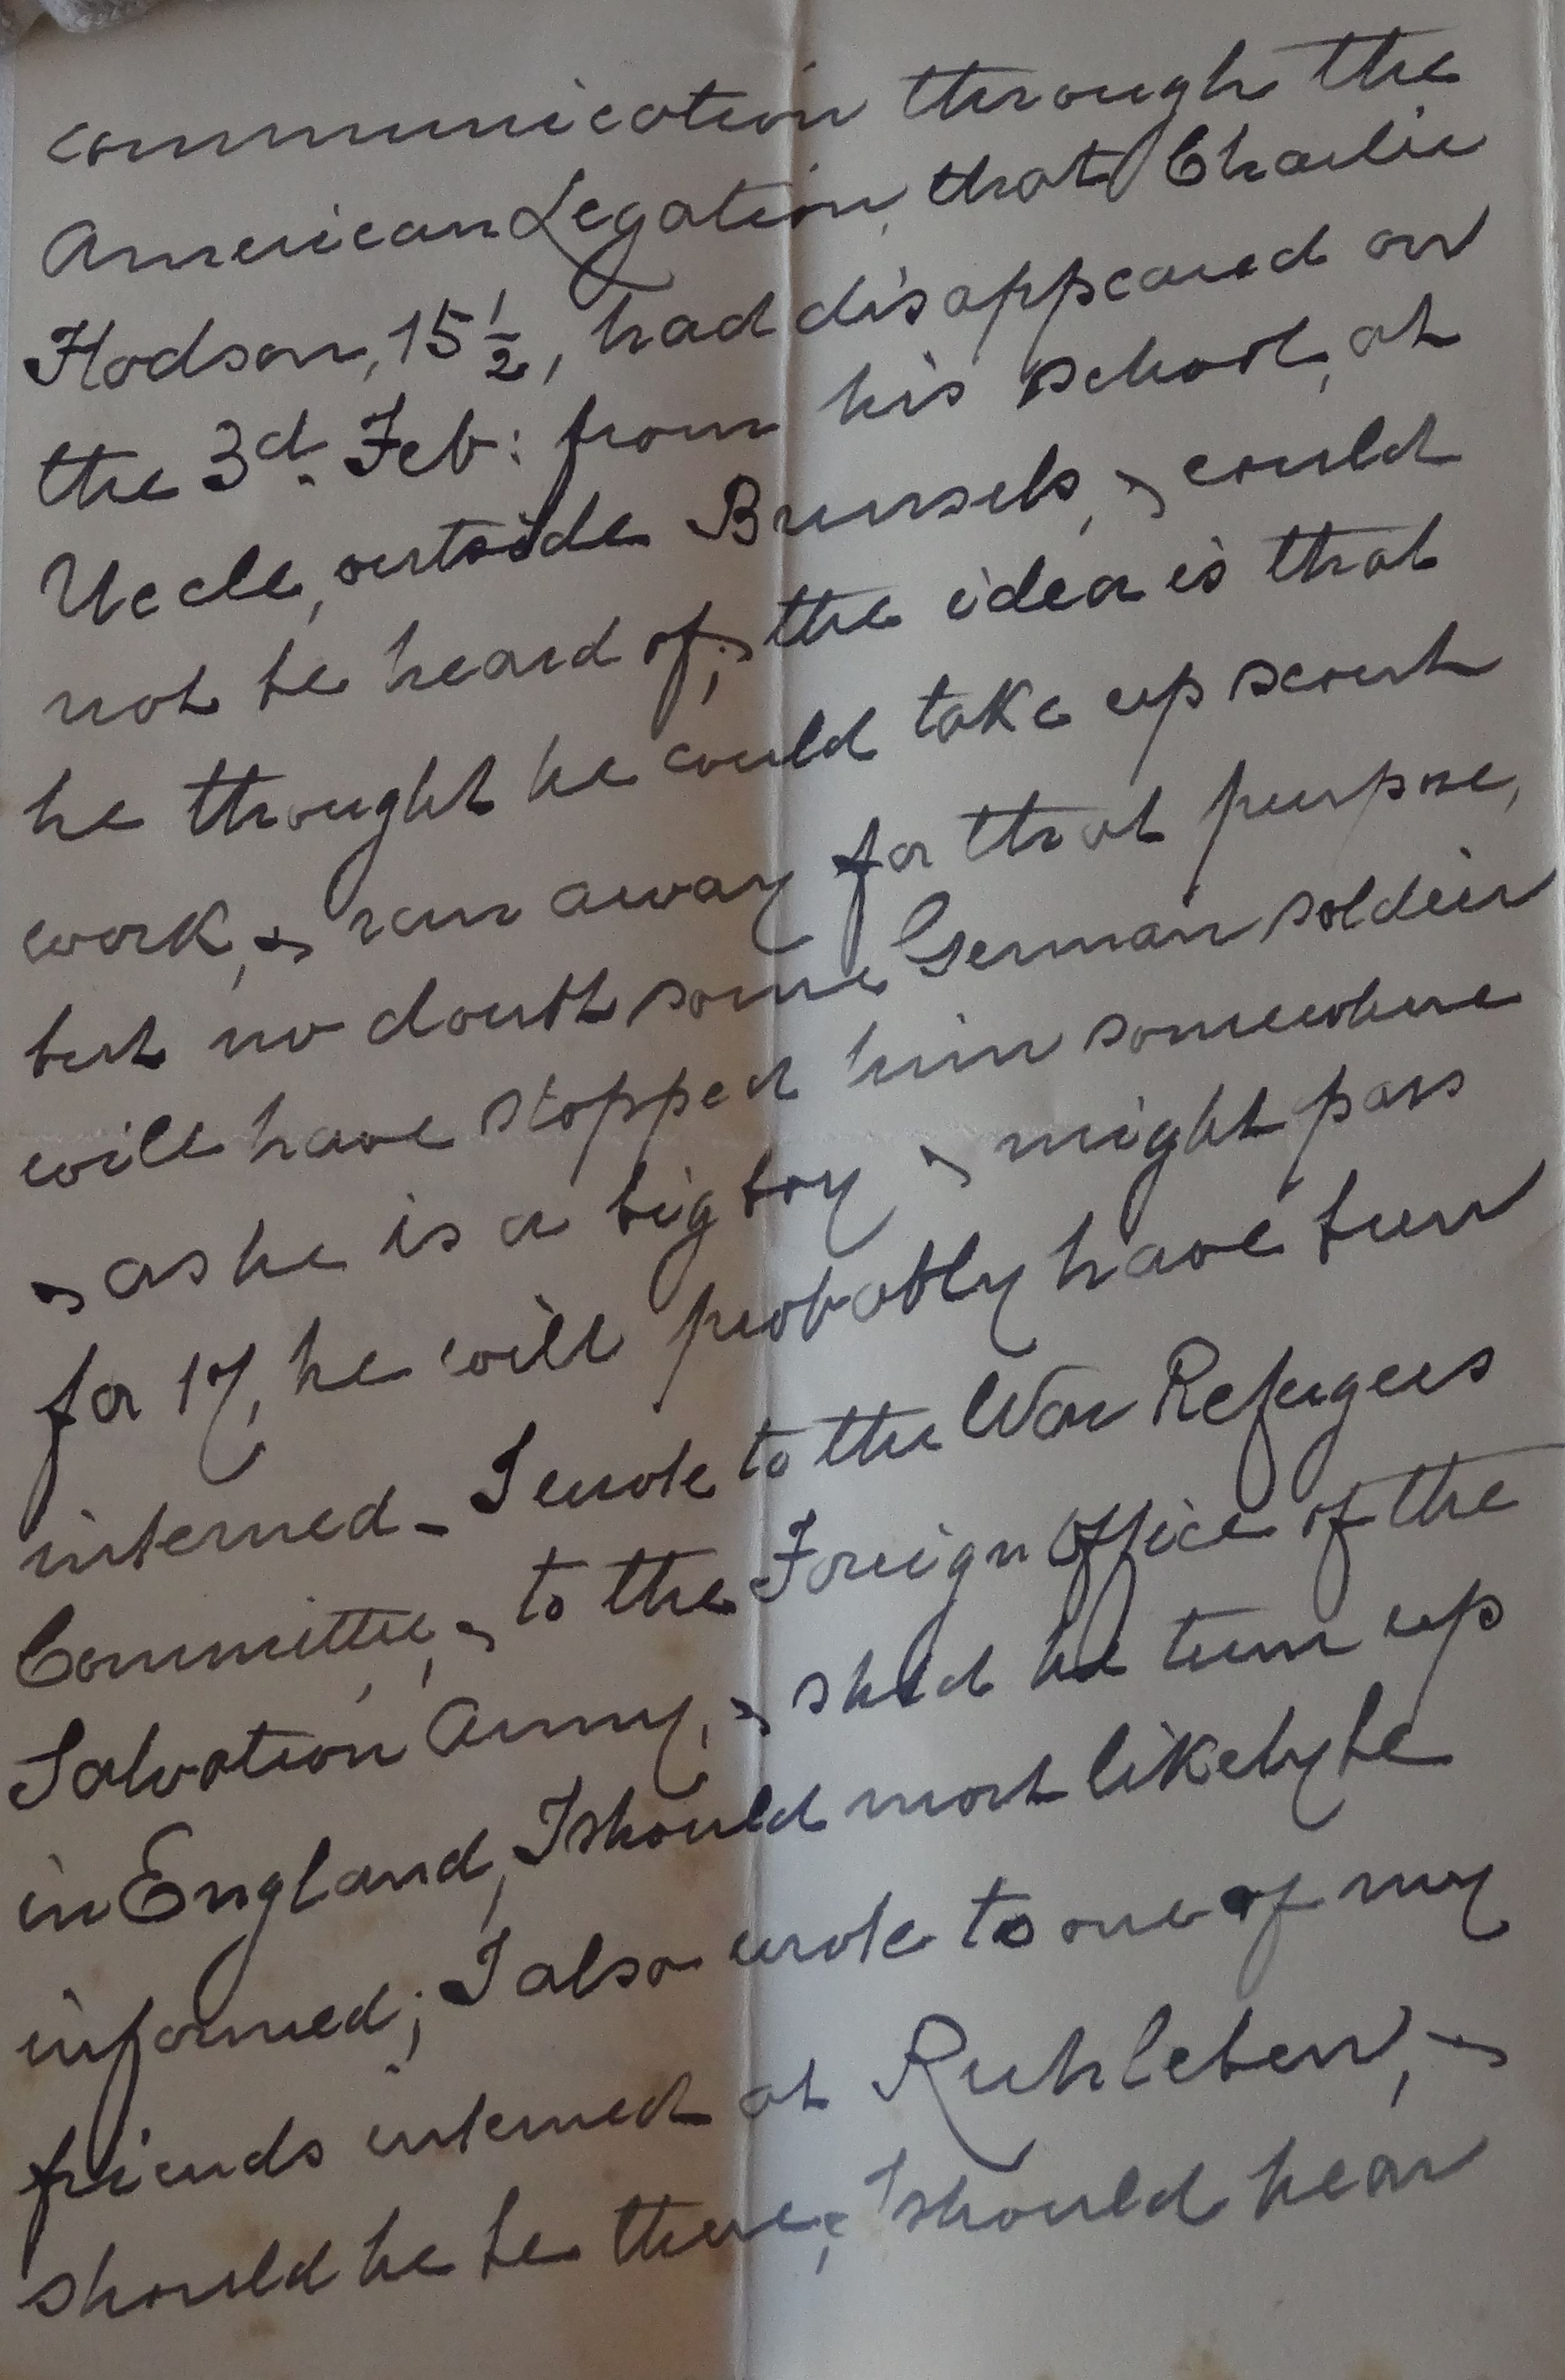 communication through the
American Legation, that Charlie
Hodson, 15 1/2, had disappeared on
the 3d. Feb: from his school, at
Uccle, outside Brussels, & could
not be heard of; & the idea is that
he thought he could take up scout
work, & ran away for that purpose,
but no doubt some German soldier
will have stopped him somewhere
& as he is a big boy & might pass
for 17, he will probably have been
interned - I wrote to the War Refugees
Committee, & to the Foreign Office of the
Salvation Army, & shld he turn up
in England, I should most likely be
informed; I also wrote to one of my
friends interned at Ruhleben, &
should he be there, I should hear